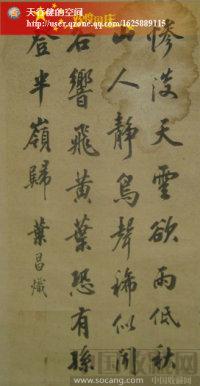 天行健的空间
http://user.qzone.qq.com/1625889115
慘淡天雲欲雨低秋
山人靜鳥聲稀似聞
石響飛黃葉恐有孫
登半嶺歸 葉昌熾
www.socang.com 中国收藏网